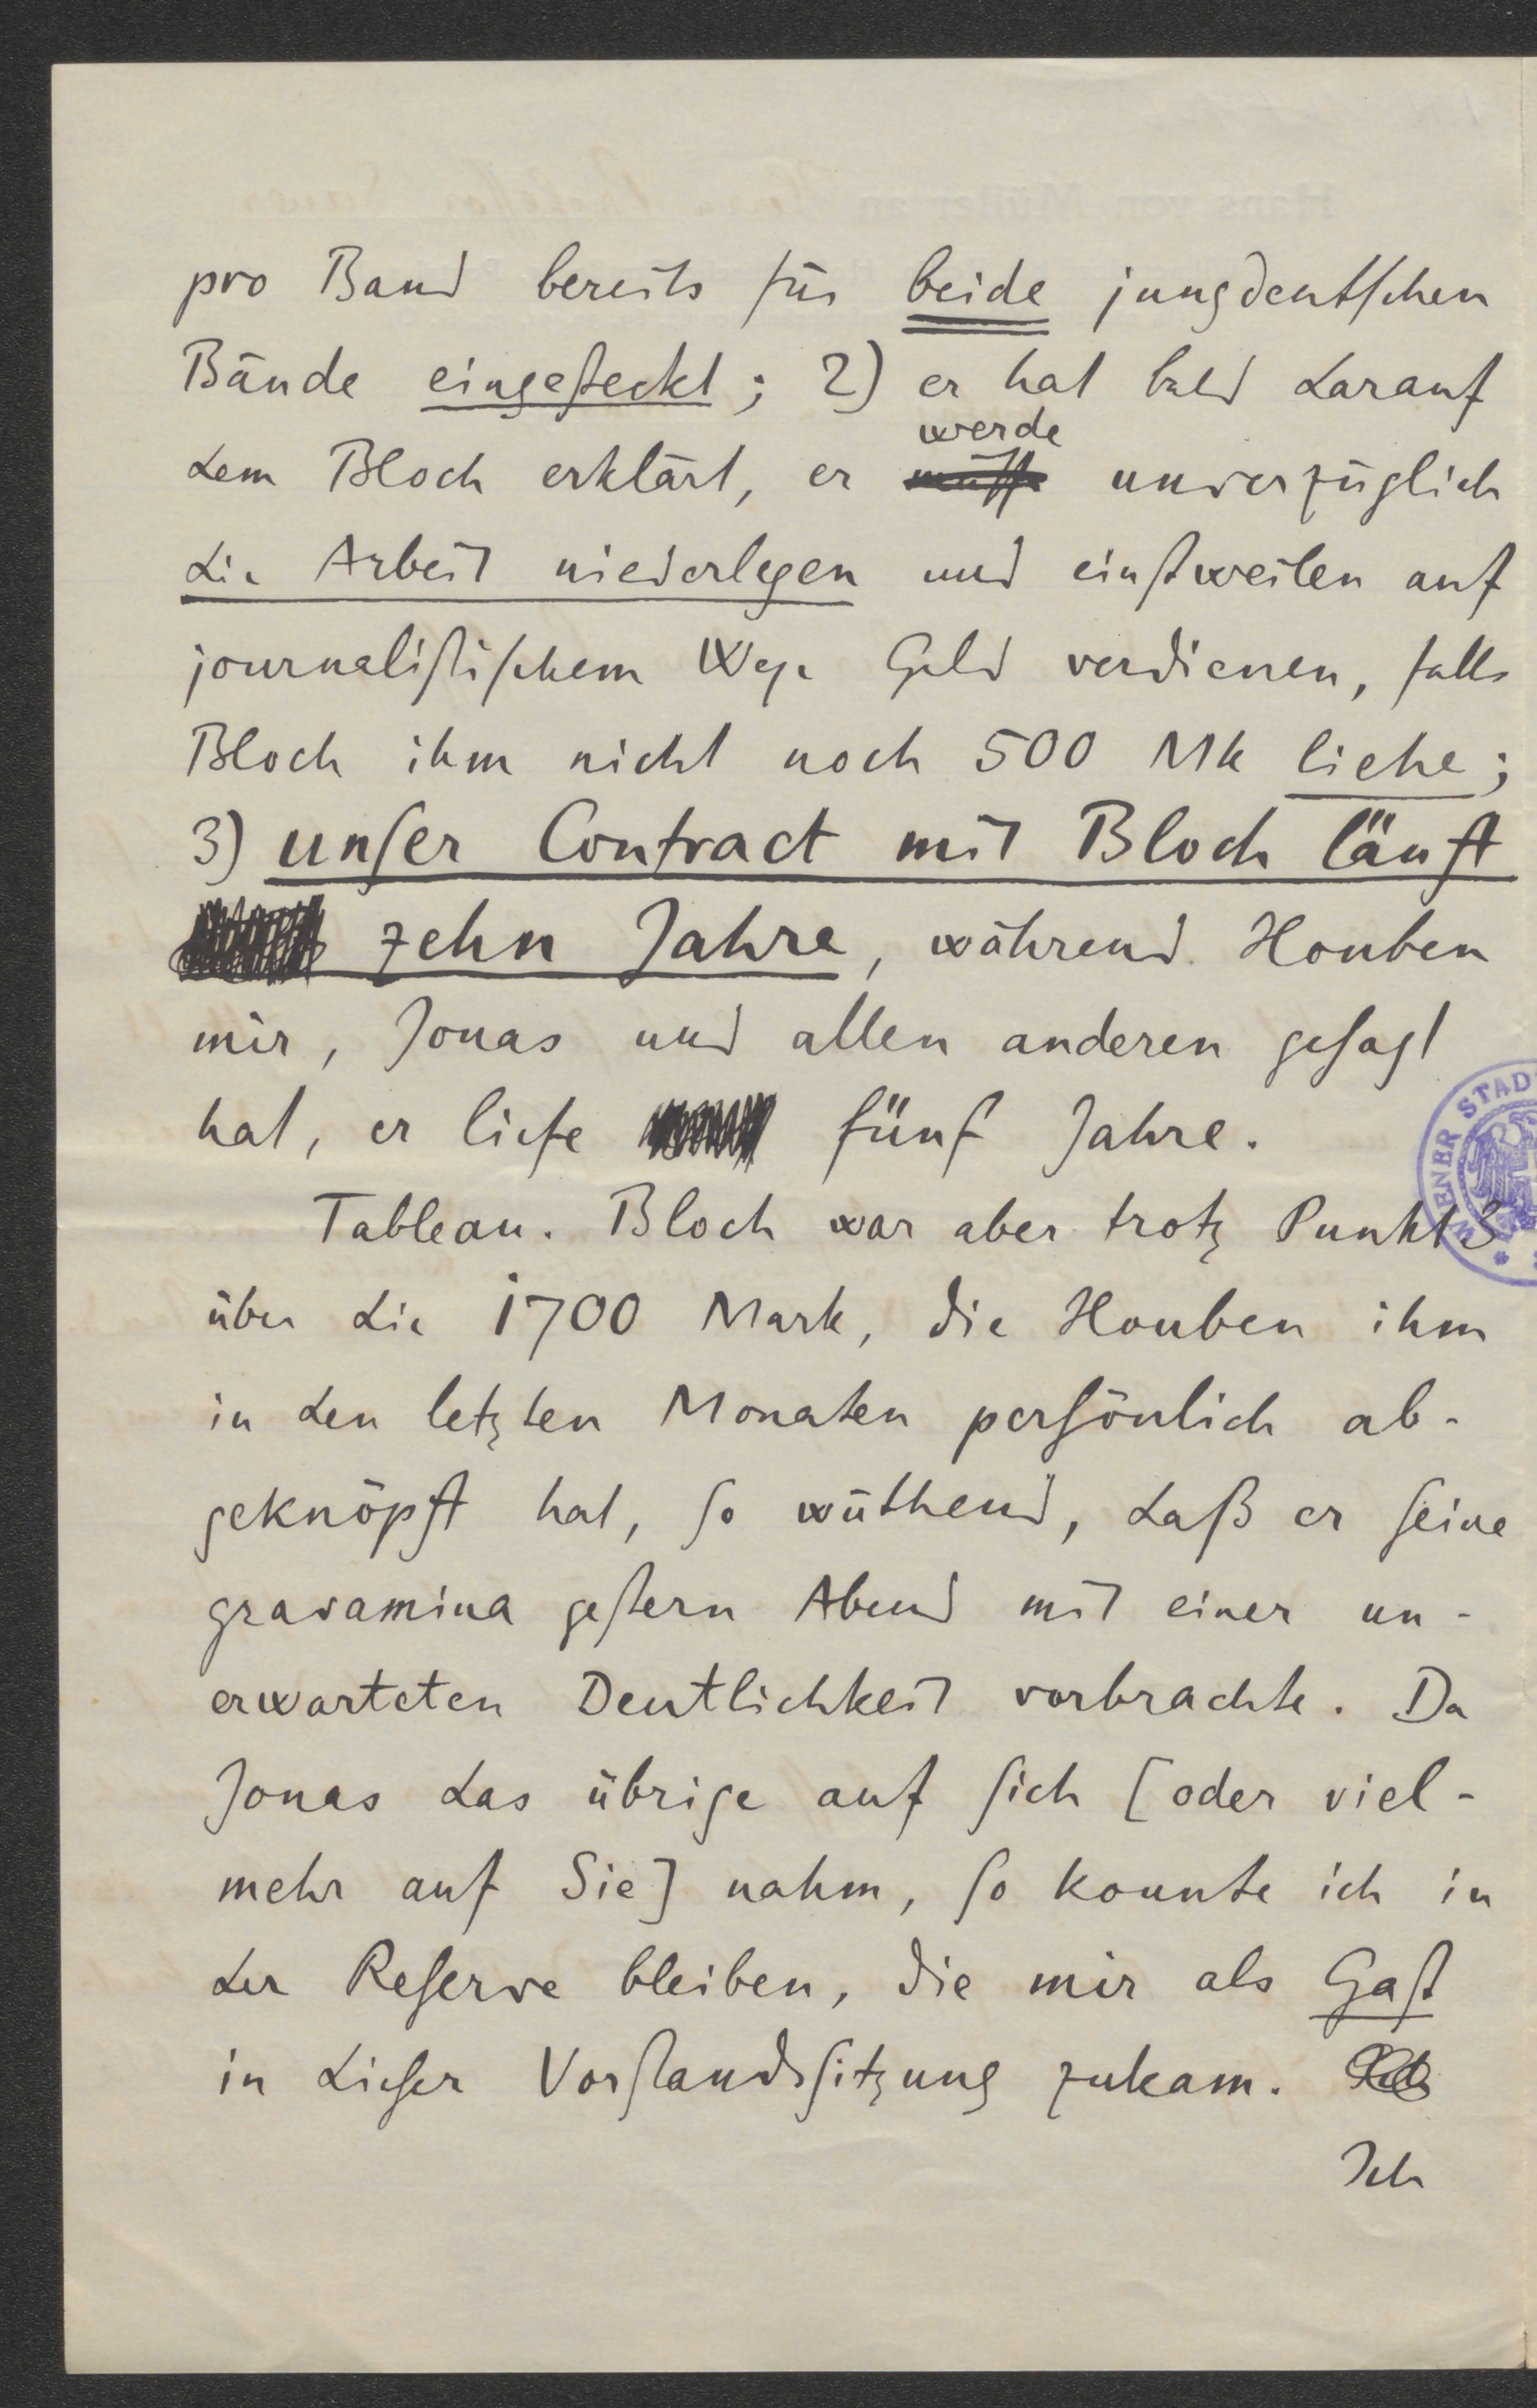 pro Band bereits für beide jungdeutschen
Bände eingesteckt; 2) er hat bald darauf
werde
dem Bloch erklärt, er müsse unverzüglich
die Arbeit niederlegen und einstweilen auf
journalistischem Wege Geld verdienen, falls
Bloch ihm nicht noch 500 Mk liehe;
3) unser Contract mit Bloch läuft
zehn Jahre, während Houben
mir, Jonas und allen anderen gesagt
hat, er liefe fünf Jahre.
Tableau. Bloch war aber trotz Punkt 3
über die 1700 Mark, die Houben ihm
in den letzten Monaten persönlich ab-
geknöpft hat, so wüthend, daß er seine
gravamina gestern Abend mit einer un-
erwarteten Deutlichkeit vorbrachte. Da
Jonas das übrige auf sich [oder viel-
mehr auf Sie] nahm, so konnte ich in
der Reserve bleiben, die mir als Gast
in dieser Vorstandssitzung zukam.
Ich
WIENER STAD